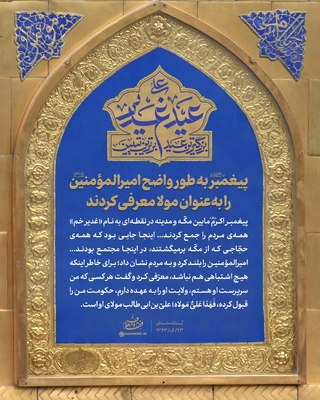 عید غدیر
پیغمبر به طور واضح امیرالمؤمنین
را به عنوان مولا معرفی کردند
پیغمبر اکرم مابین مکّه و مدینه در نقطه‌ای به نام «غدیر خم»
همه‌ی مردم را جمع کردند... اینجا جایی بود که همه‌ی
حجّاجی که از مکّه برمیگشتند، در اینجا مجتمع بودند...
امیرالمؤمنین را بلند کرد و به مردم نشان داد؛ برای خاطر اینکه
هیچ اشتباهی هم نباشد، معرّفی کرد و گفت هر کسی که من
سرپرست او هستم، ولایت او را به عهده دارم، حکومت من را
قبول کرده، فَهٰذا عَلیٌّ مَولاه؛ علیّ‌بن‌ابی‌طالب مولای او است.